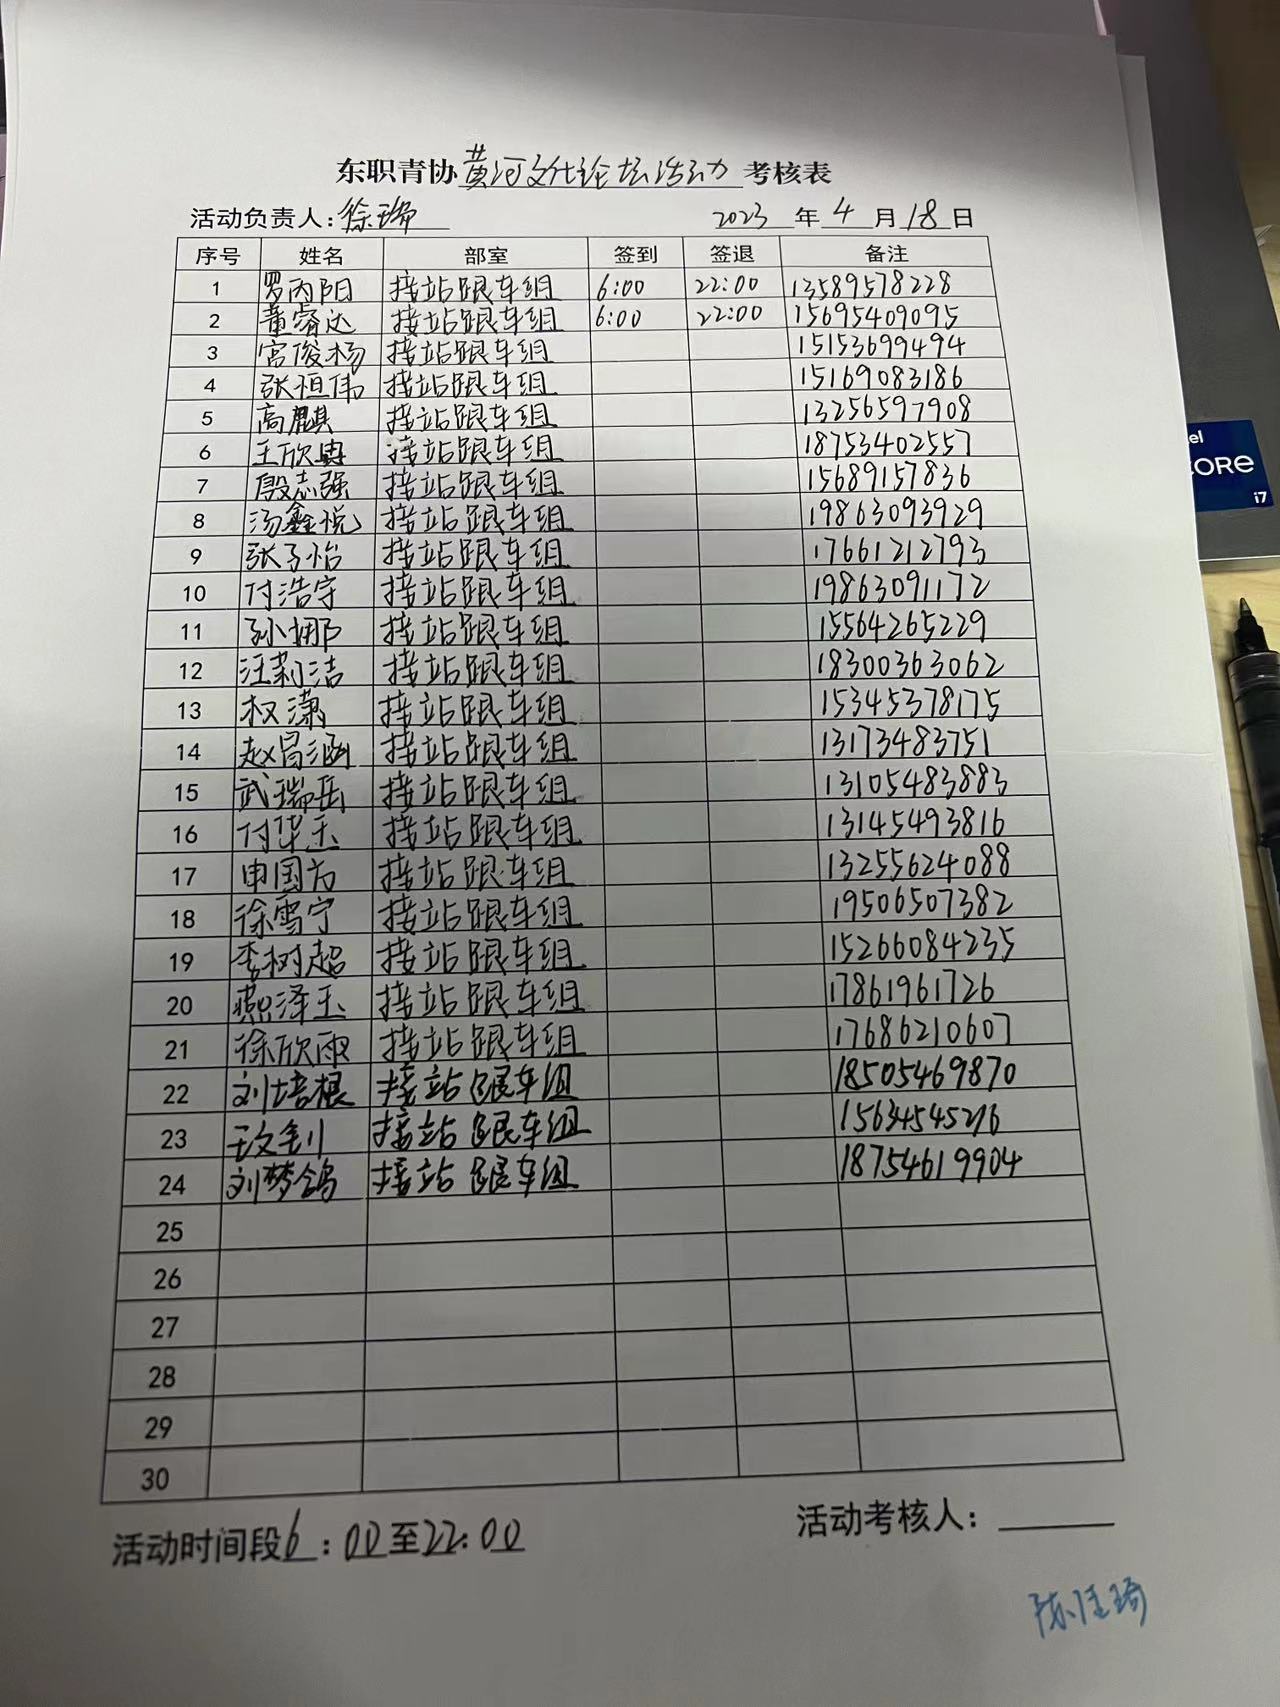 东职青协 黄河文化论坛活动 考核表
活动负责人：徐瑞 2023 年 4 月 18 日
序号 姓名 部室 签到 签退 备注
1 罗丙阳 接站跟车组 6:00 22:00 13589578228
2 董睿达 接站跟车组 6:00 22:00 15695409095
3 宫俊杨 接站跟车组 15153699494
4 张恒伟 接站跟车组 15169083186
5 高麒 接站跟车组 13256597908
6 王欣冉 接站跟车组 18753402557
7 殷志强 接站跟车组 15689157836
8 汤鑫悦 接站跟车组 19863093929
9 张子怡 接站跟车组 17661212793
10 付浩宇 接站跟车组 19863091172
11 孙娜 接站跟车组 15564265229
12 汪莉洁 接站跟车组 18300363062
13 权潇 接站跟车组 15345378175
14 赵昌涵 接站跟车组 13173483751
15 武瑞岳 接站跟车组 13105483883
16 付华玉 接站跟车组 13145493816
17 申国方 接站跟车组 13255624088
18 徐雪宁 接站跟车组 19506507382
19 李树超 接站跟车组 15266084235
20 燕泽玉 接站跟车组 17861961726
21 徐欣雨 接站跟车组 17686210607
22 刘培根 接站跟车组 18505469870
23 王文钊 接站跟车组 15634545216
24 刘梦鸽 接站跟车组 18754619904
25
26
27
28
29
30
活动时间段6：00至22:00 活动考核人：
陈佳琦
el
CORE
i7